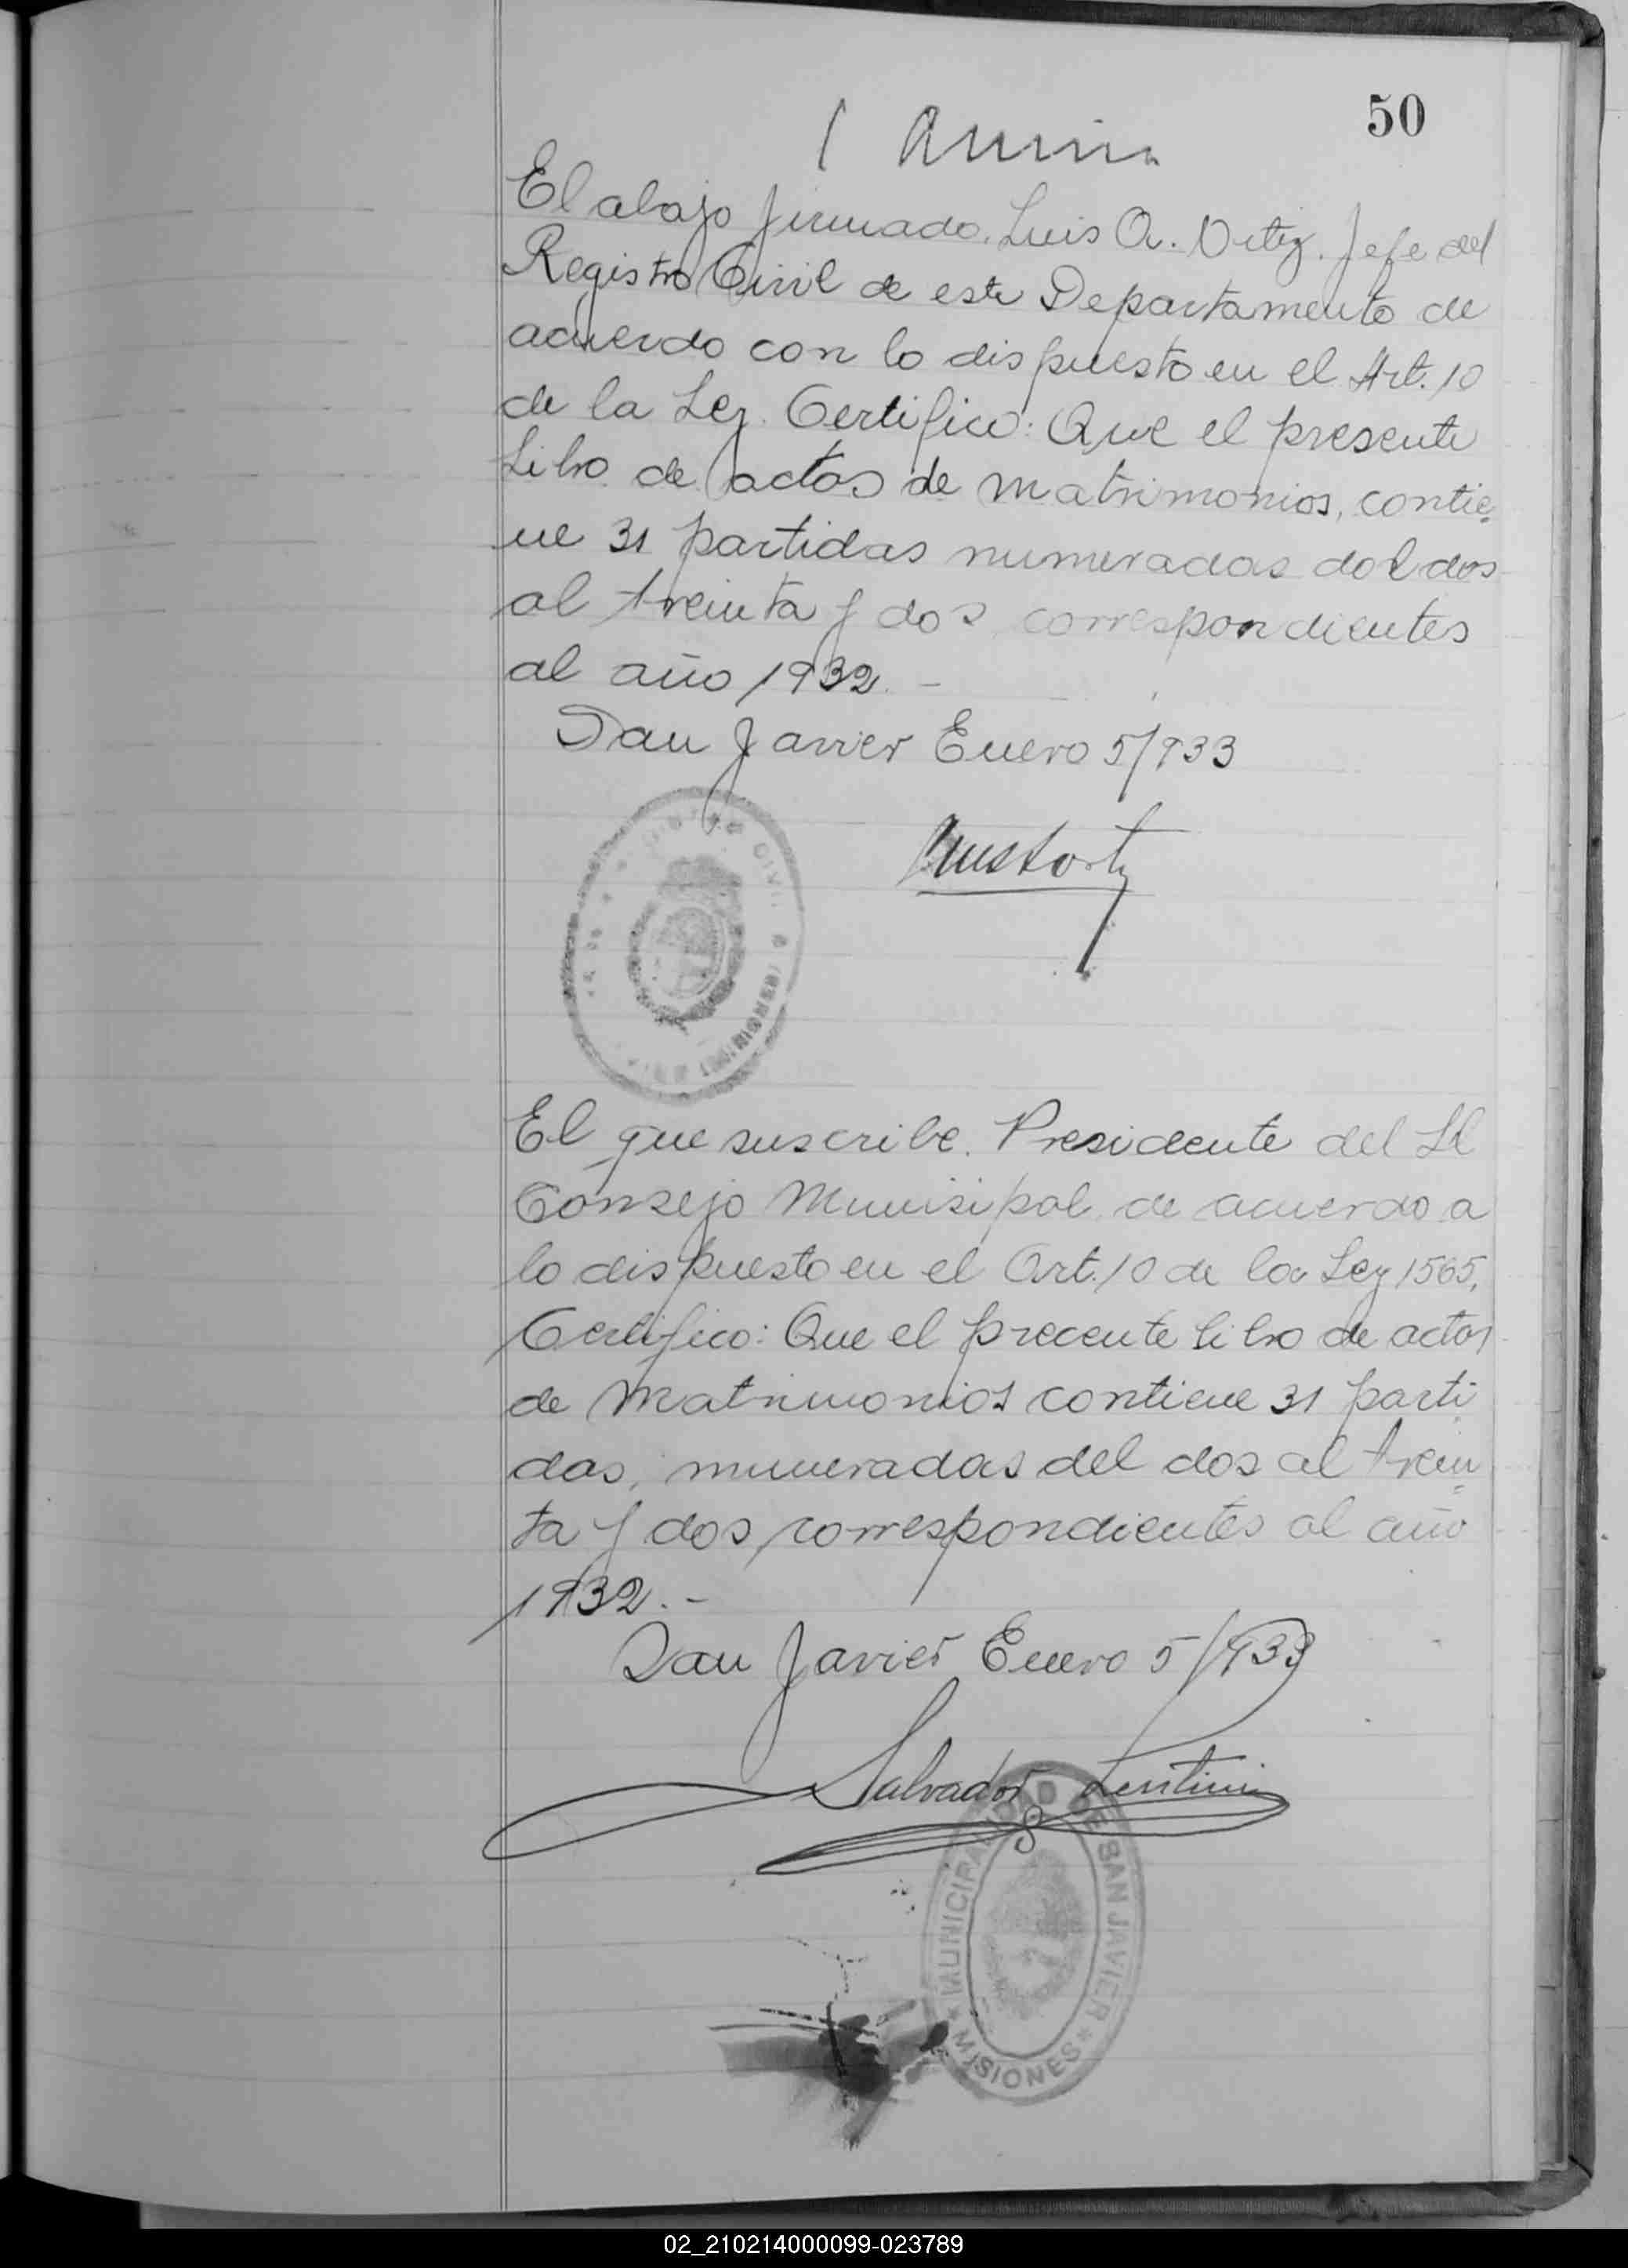 50
El abajo firmado. Luis A. Ortiz. Jefe del
Registro Civil de este Departamento de
acuerdo con lo dispuesto en el Art. 10
de la Ley. Certifico: Que el presente
Libro de actas de matrimonios, contie-
ne 31 partidas numeradas del dos
al treinta y dos correspondientes
al año 1932. -
San Javier Enero 5/933
El que suscribe. Presidente del
Consejo Munisipal de acuerdo a
lo dispuesto en el Art. 10 de la Ley 1565,
Certifico: Que el precente libro de actas
de Matrimonios contiene 31 parti
das, numeradas del dos al trein
ta y dos correspondientes al año
1932. -
San Javier Enero 5/933
Salvador Lentini
MUNICIPALIDAD DE SAN JAVIER
* MISIONES *
02_210214000099-023789